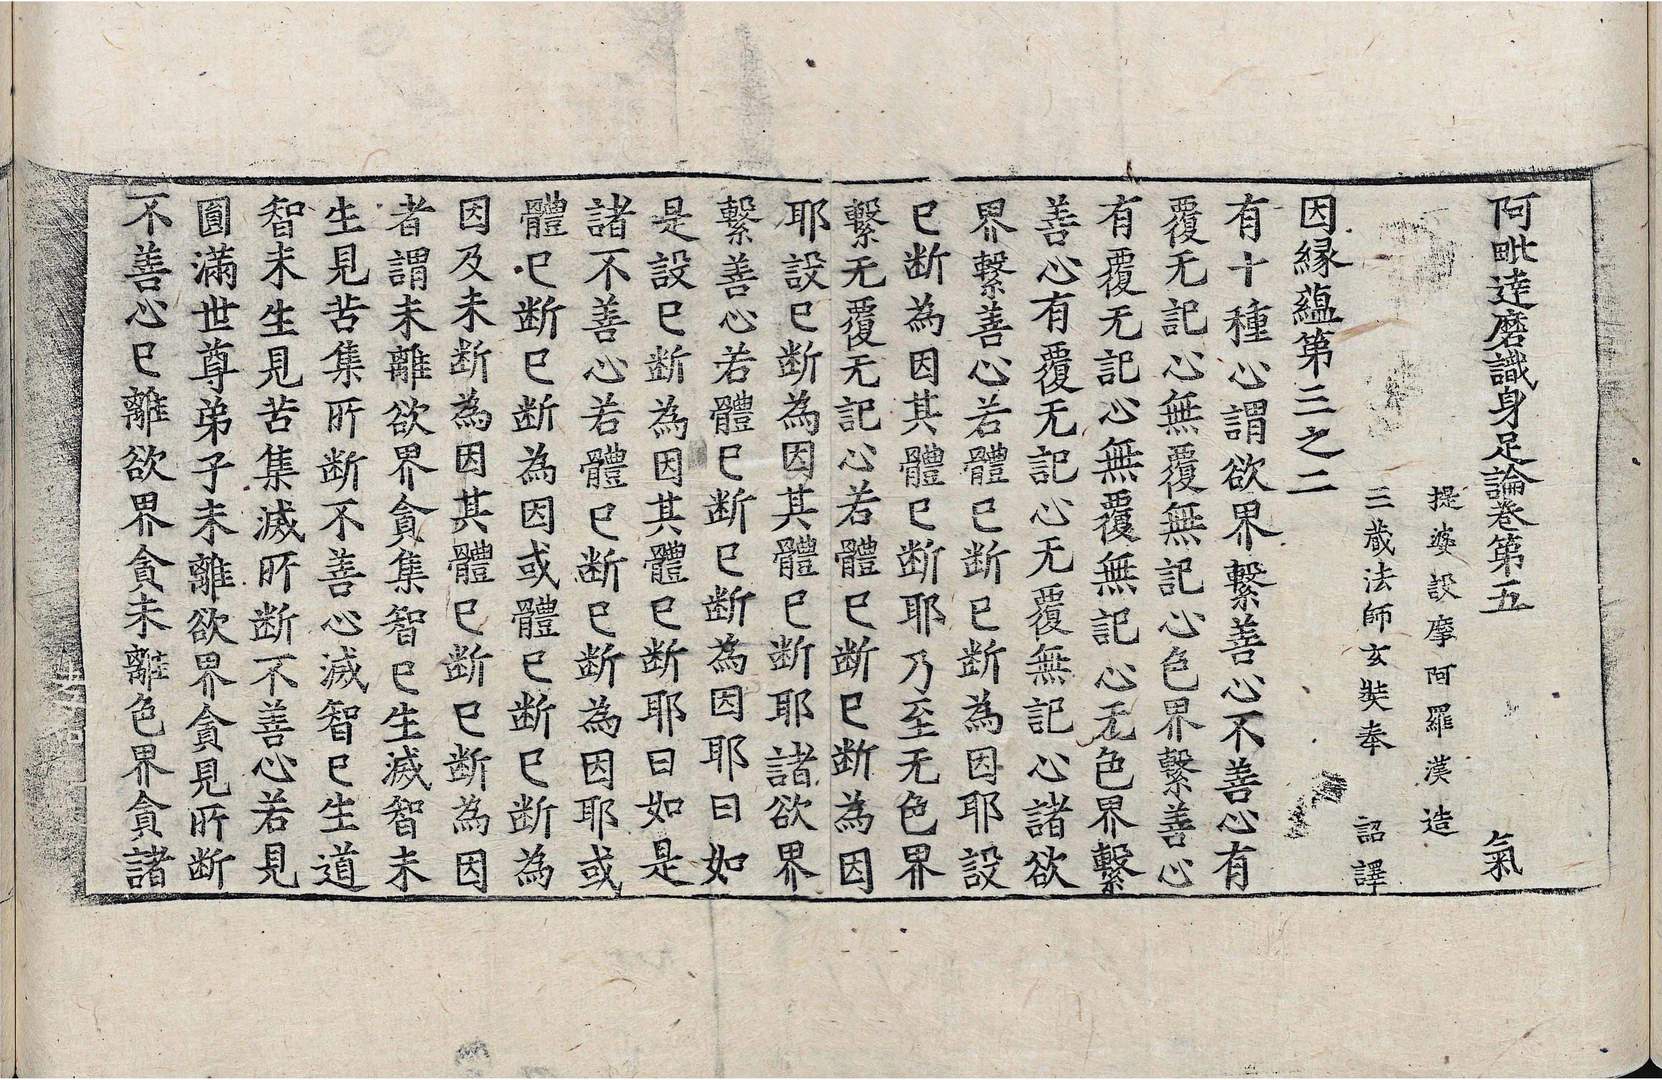 阿毗達磨識身足論卷第五 氣
提婆設摩阿羅漢造
三藏法師玄奘奉 詔譯
因緣蘊第三之二
有十種心謂欲界繫善心不善心有
覆无記心無覆無記心色界繫善心
有覆无記心無覆無記心无色界繫
善心有覆无記心无覆無記心諸欲
界繫善心若體已斷已斷為因耶設
已斷為因其體已斷耶乃至无色界
繫无覆无記心若體已斷已斷為因
耶設已斷為因其體已斷耶諸欲界
繫善心若體已斷已斷為因耶曰如
是設已斷為因其體已斷耶曰如是
諸不善心若體已斷已斷為因耶或
體已斷已斷為因或體已斷已斷為
因及未斷為因其體已斷已斷為因
者謂未離欲界貪集智已生滅智未
生見苦集所斷不善心滅智已生道
智未生見苦集滅所斷不善心若見
圓滿世尊弟子未離欲界貪見所斷
不善心已離欲界貪未離色界貪諸